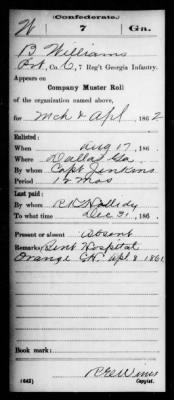 (Confederate.)
W 7 Ga.
B Williams
Pvt, Co. C, 7 Reg't Georgia Infantry.
Appears on
Company Muster Roll
of the organization named above,
for Mch & Apl, 1862
Enlisted:
When Aug 17, 186
Where Dallas Ga
By whom Capt Jenkins
Period 12 Mos
Last paid:
By whom
To what time Dec 31, 186
Present or absent Absent
Remarks: Sent Hospital
Orange C.H. Apl 8 186
Book mark:
(642)
Copyist.